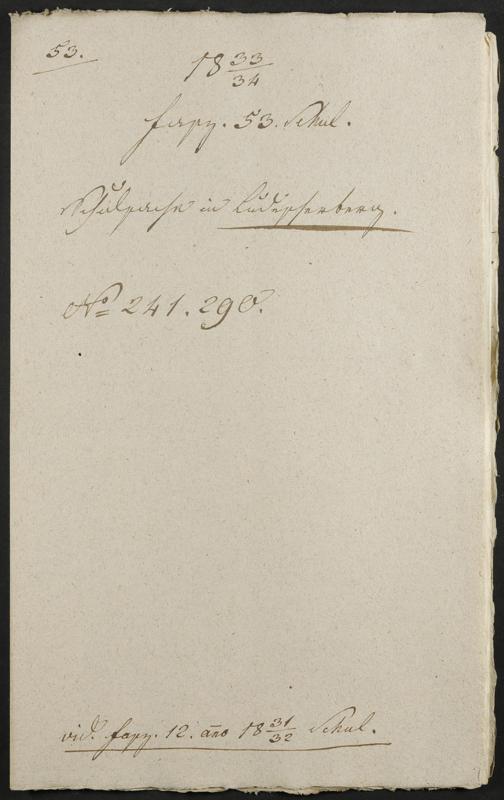 53.
18 33/34
fasz. 53. Schul.
Schulsache in
No 241. 290.
vid. fasz. 12. ano 18 31/32 Schul.